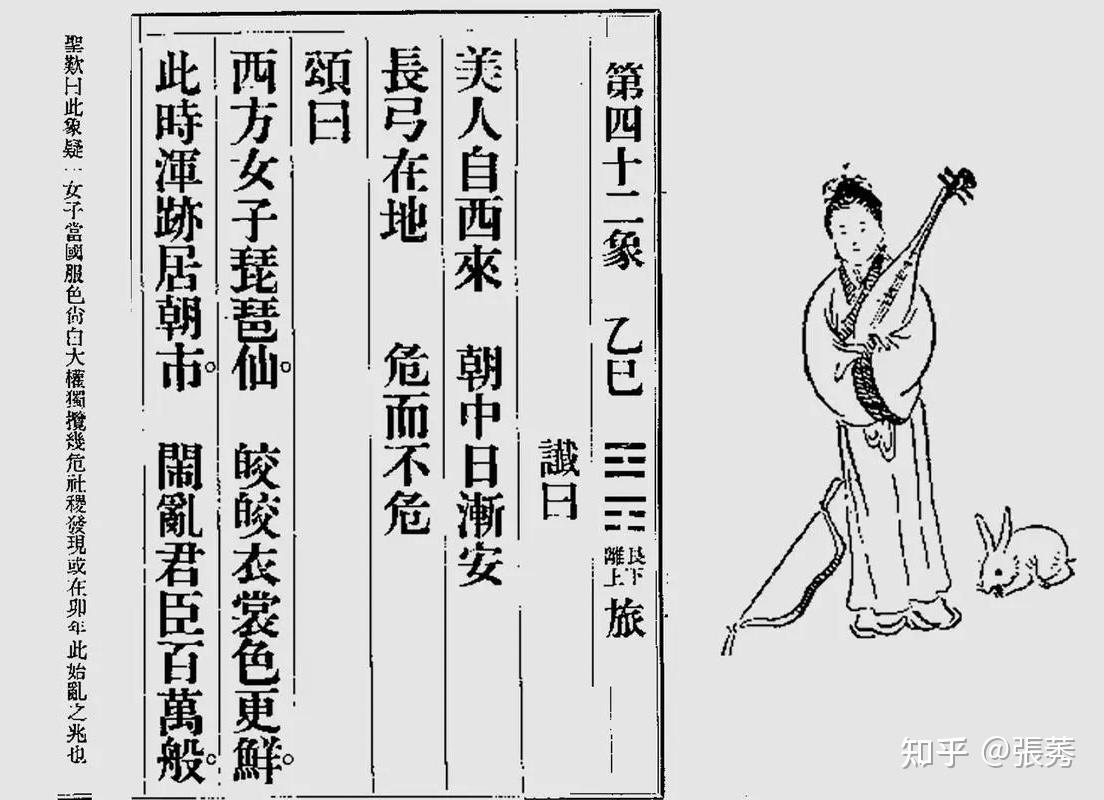 第四十二象 乙巳 艮下離上 旅
讖曰
美人自西來 朝中日漸安
長弓在地 危而不危
頌曰
西方女子琵琶仙。 皎皎衣裳色更鮮。
此時渾跡居朝市。 鬧亂君臣百萬般。
聖歎曰此象疑一女子當國服色尚白大權獨攬幾危社稷發現或在卯年此始亂之兆也
知乎 @張莠